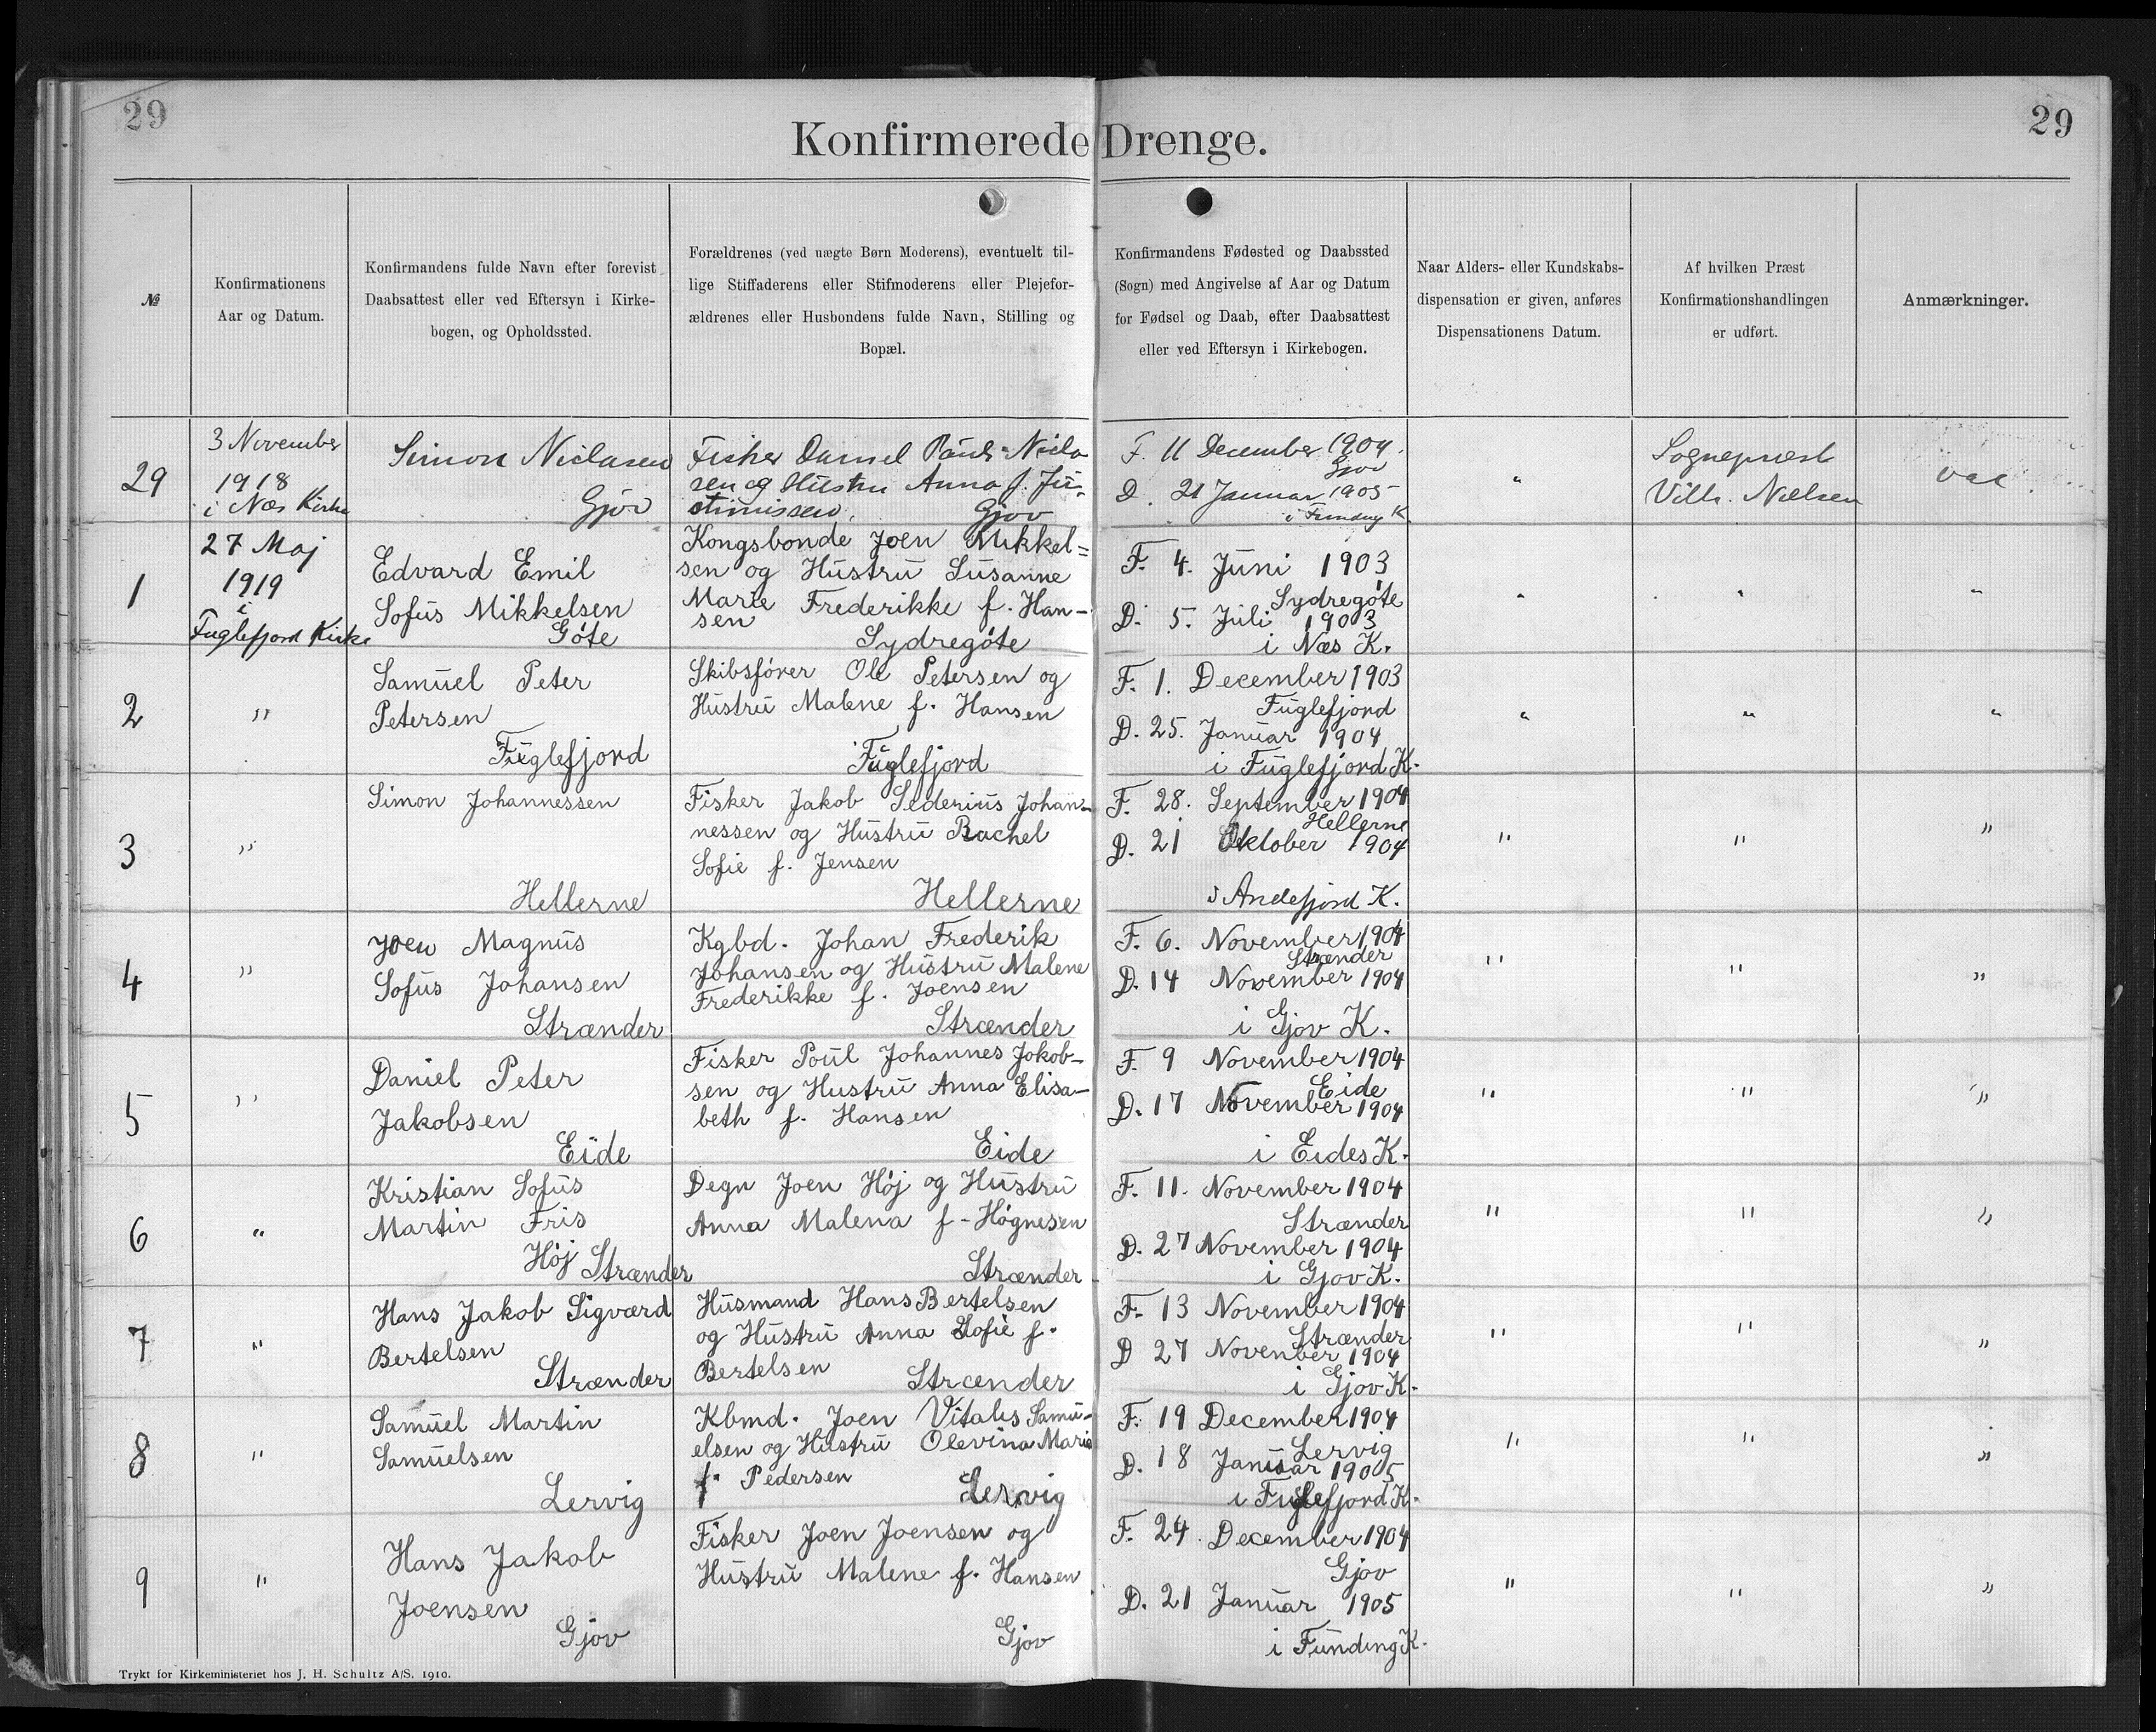 29
29
Konfirmerede Drenge.
№
Konfirmationens
Aar og Datum.
Konfirmandens fulde Navn efter forevist
Daabsattest eller ved Eftersyn i Kirke-
bogen, og Opholdssted.
Forældrenes (ved uægte Børn Moderens), eventuelt til-
lige Stiffaderens eller Stifmoderens eller Plejefor-
ældrenes eller Husbondens fulde Navn, Stilling og
Bopæl.
Konfirmandens Fødested og Daabssted
(Sogn) med Angivelse af Aar og Datum
for Fødsel og Daab, efter Daabsattest
eller ved Eftersyn i Kirkebogen.
Naar Alders- eller Kundskabs-
dispensation er given, anføres
Dispensationens Datum.
Af hvilken Præst
Konfirmationshandlingen
er udført.
Anmærkninger.
29
3 November
1918
i Næs Kirke
Simon Niclasen
Gjov
Fisker Daniel Pauli Nicla
sen og Hustru Anna f. Ju-
stinissen,
Gjov
F. 11 December 1904.
Gjov
D. 21 Januar 1905
i Funding K
"
Sognepræst
Vilh. Nielsen
vac.
1
27 Maj
1919
i
Fuglefjord Kirke
Edvard Emil
Sofus Mikkelsen
Gøte
Kongsbonde Joen Mikkel=
sen og Hustru Susanne
Marie Frederikke f. Han-
sen
Sydregøte
F. 4. Juni 1903
Sydregøte
D. 5. Juli 1903
i Næs K.
" " "
2
"
Samuel Peter
Petersen
Fuglefjord
Skibsfører Ole Petersen og
Hustru Malene f. Hansen
Fuglefjord
F. 1. December 1903
Fuglefjord
D. 25. Januar 1904
i Fuglefjord K.
" " "
3
"
Simon Johannessen
Hellerne
Fisker Jakob Sederius Johan-
nessen og Hustru Rachel
Sofie f. Jensen
Hellerne
F. 28. September 1904
Hellerne
D. 21 Oktober 1904
i Andefjord K.
" " "
4
"
Joen Magnus
Sofus Johansen
Strænder
Kgbd. Johan Frederik
Johansen og Hustru Malene
Frederikke f. Joensen
Strænder
F. 6. November 1904
Strænder
D. 14 November 1904
i Gjov K.
" " "
5
"
Daniel Peter
Jakobsen
Eide
Fisker Poul Johannes Jokob-
sen og Hustru Anna Elisa-
beth f. Hansen
Eide
F. 9 November 1904
Eide
D. 17 November 1904
i Eides K.
" " "
6
"
Kristian Sofus
Martin Fris
Høj Strænder
Degn Joen Høj og Hustru
Anna Malena f. Høgnesen
Strænder
F. 11. November 1904
Strænder
D. 27 November 1904
i Gjov K.
" " "
7
"
Hans Jakob Sigvard
Bertelsen
Strænder
Husmand Hans Bertelsen
og Hustru Anna Sofie f.
Bertelsen
Strænder
F. 13 November 1904
Strænder
D 27 November 1904
i Gjov K.
" " "
8
"
Samuel Martin
Samuelsen
Lervig
Kbmd. Joen Vitalis Samu-
elsen og Hustru Olevina Maria
f. Pedersen
Lervig
F. 19 December 1904
Lervig
D. 18 Januar 1905
i Fuglefjord K.
" " "
9
"
Hans Jakob
Joensen
Gjov
Fisker Joen Joensen og
Hustru Malene f. Hansen
Gjov
F. 24. December 1904
Gjov
D. 21 Januar 1905
i Funding K.
" " "
Trykt for Kirkeministeriet hos J. H. Schultz A/S. 1910.